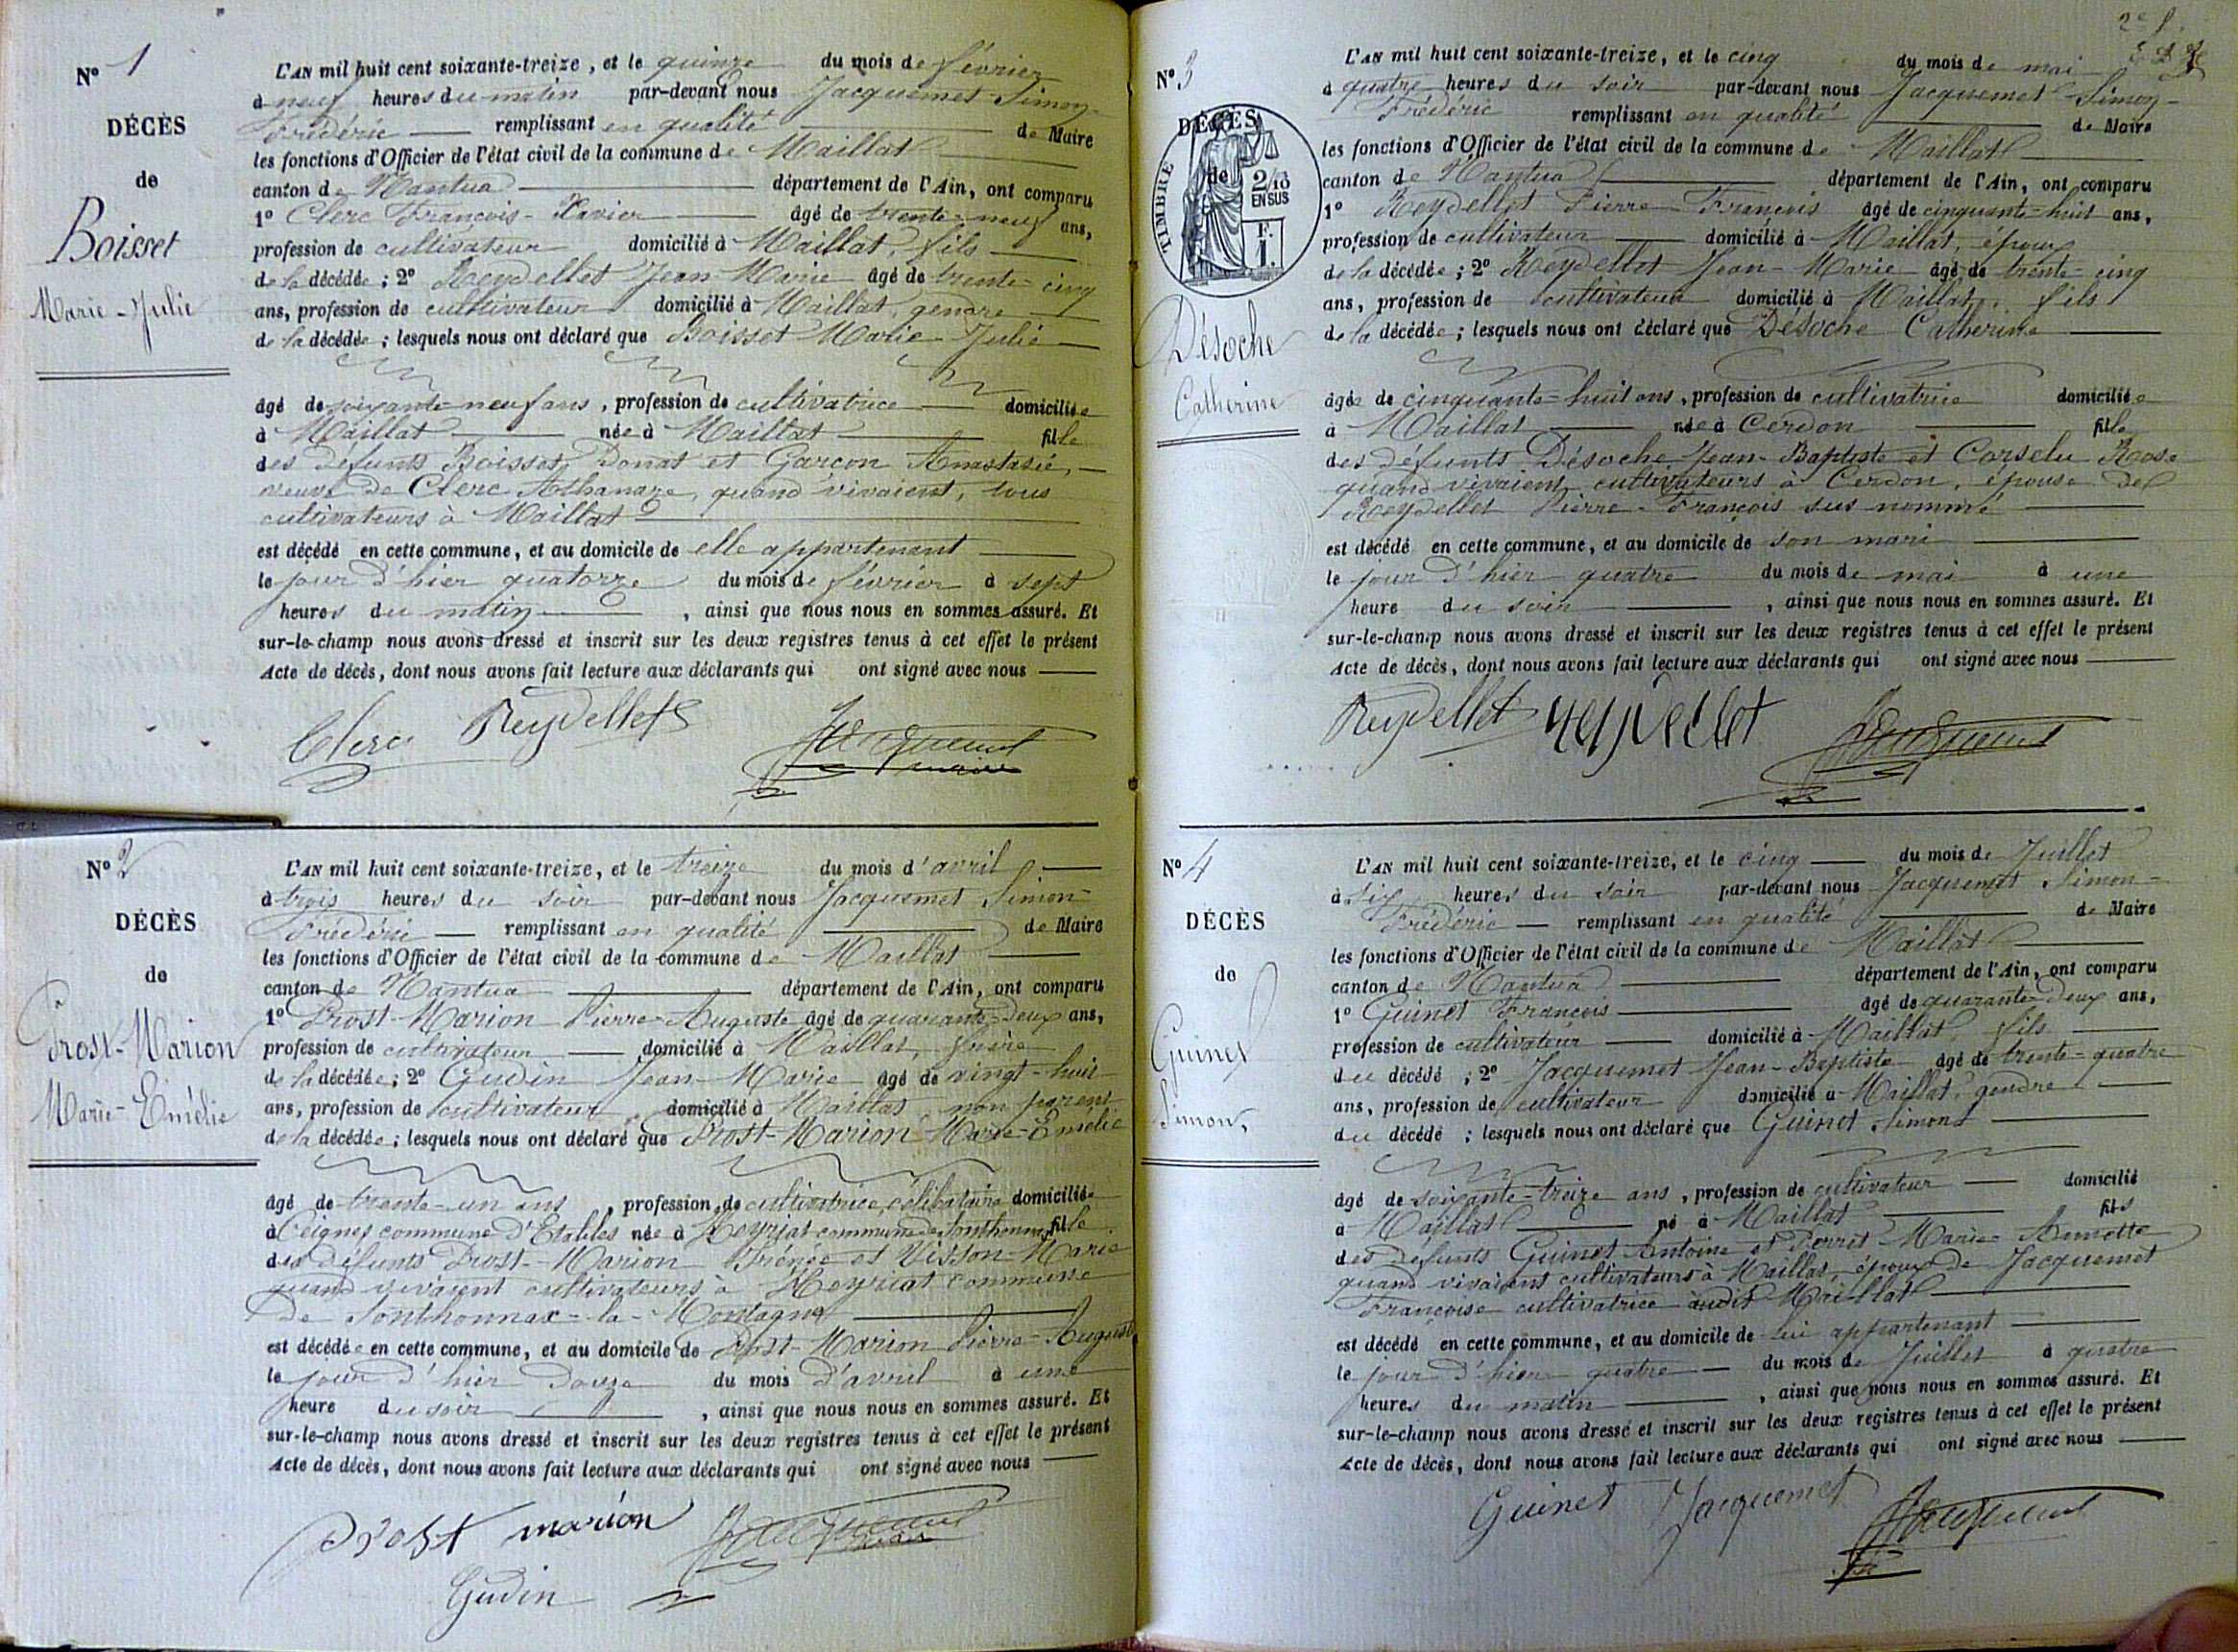 N° 1
DÉCÈS
de
Boisset
Marie-Julie
L'AN mil huit cent soixante-treize, et le quinze du mois de février
à neuf heures du matin par-devant nous Jacquemet Simon-
Frédéric remplissant en qualité de Maire
les fonctions d'Officier de l'état civil de la commune de Maillat
canton de Nantua département de l'Ain, ont comparu
1° Clerc François-Xavier âgé de trente-neuf ans,
profession de cultivateur domicilié à Maillat, fils
de la décédée; 2° Reydellet Jean-Marie âgé de trente-cinq
ans, profession de cultivateur domicilié à Maillat, gendre
de la décédée; lesquels nous ont déclaré que Boisset Marie-Julie
âgé de soixante-neuf ans, profession de cultivatrice domiciliée
à Maillat née à Maillat fille
des défunts Boisset Donat et Garçon Anastasie,
veuve de Clerc Athanaze, quand vivaient, tous
cultivateurs à Maillat
est décédé en cette commune, et au domicile de elle appartenant
le jour d'hier quatorze du mois de février à sept
heures du matin, ainsi que nous nous en sommes assuré. Et
sur-le-champ nous avons dressé et inscrit sur les deux registres tenus à cet effet le présent
Acte de décès, dont nous avons fait lecture aux déclarants qui ont signé avec nous
Clerc Reydellet Jacquemet
maire
N° 2
DÉCÈS
de
Prost-Marion
Marie-Emélie
L'AN mil huit cent soixante-treize, et le treize du mois d'avril
à trois heures du soir par-devant nous Jacquemet Simon-
Frédéric remplissant en qualité de Maire
les fonctions d'Officier de l'état civil de la commune de Maillat
canton de Nantua département de l'Ain, ont comparu
1° Prost-Marion Pierre-Auguste âgé de quarante-deux ans,
profession de cultivateur domicilié à Maillat, frère
de la décédée; 2° Gudin Jean-Marie âgé de vingt-huit
ans, profession de cultivateur domicilié à Maillat, non parent
de la décédée; lesquels nous ont déclaré que Prost-Marion Marie-Emélie
âgé de trente-un ans, profession de cultivatrice, célibataire domiciliée
à Ceignes commune d'Etables née à Heyriat commune de Sonthonnax fille
des défunts Prost-Marion Irénée et Visson Marie
quand vivaient cultivateurs à Heyriat commune
de Sonthonnax-la-Montagne
est décédée en cette commune, et au domicile de Prost-Marion Pierre-Auguste
le jour d'hier douze du mois d'avril à une
heure du soir, ainsi que nous nous en sommes assuré. Et
sur-le-champ nous avons dressé et inscrit sur les deux registres tenus à cet effet le présent
Acte de décès, dont nous avons fait lecture aux déclarants qui ont signé avec nous
prost marion Jacquemet
Gudin
N° 3
DÉCÈS
de
TIMBRE
2/10
EN SUS
F.
1.
Désoche
Catherine
L'AN mil huit cent soixante-treize, et le cinq du mois de mai
à quatre heures du soir par-devant nous Jacquemet Simon-
Frédéric remplissant en qualité de Maire
les fonctions d'Officier de l'état civil de la commune de Maillat
canton de Nantua département de l'Ain, ont comparu
1° Reydellet Pierre-François âgé de cinquante-huit ans,
profession de cultivateur domicilié à Maillat, époux
de la décédée; 2° Reydellet Jean-Marie âgé de trente-cinq
ans, profession de cultivateur domicilié à Maillat, fils
de la décédée; lesquels nous ont déclaré que Désoche Catherine
âgée de cinquante-huit ans, profession de cultivatrice domiciliée
à Maillat née à Cerdon fille
des défunts Désoche Jean-Baptiste et Corselu Rose
quand vivaient cultivateurs à Cerdon, épouse de
Reydellet Pierre-François sus nommé
est décédé en cette commune, et au domicile de son mari
le jour d'hier quatre du mois de mai à une
heure du soir, ainsi que nous nous en sommes assuré. Et
sur-le-champ nous avons dressé et inscrit sur les deux registres tenus à cet effet le présent
Acte de décès, dont nous avons fait lecture aux déclarants qui ont signé avec nous
Reydellet reydellet Jacquemet
N° 4
DÉCÈS
de
Guinet
Simon,
L'AN mil huit cent soixante-treize, et le cinq du mois de Juillet
à six heures du soir par-devant nous Jacquemet Simon-
Frédéric remplissant en qualité de Maire
les fonctions d'Officier de l'état civil de la commune de Maillat
canton de Nantua département de l'Ain, ont comparu
1° Guinet François âgé de quarante-deux ans,
profession de cultivateur domicilié à Maillat, fils
du décédé; 2° Jacquemet Jean-Baptiste âgé de trente-quatre
ans, profession de cultivateur domicilié à Maillat, gendre
du décédé; lesquels nous ont déclaré que Guinet Simon
âgé de soixante-treize ans, profession de cultivateur domicilié
à Maillat né à Maillat fils
des défunts Guinet Antoine et Perret Marie-Annette
quand vivaient cultivateurs à Maillat, époux de Jacquemet
Françoise cultivatrice audit Maillat
est décédé en cette commune, et au domicile de lui appartenant
le jour d'hier quatre du mois de Juillet à quatre
heures du matin, ainsi que nous nous en sommes assuré. Et
sur-le-champ nous avons dressé et inscrit sur les deux registres tenus à cet effet le présent
Acte de décès, dont nous avons fait lecture aux déclarants qui ont signé avec nous
Guinet Jacquemet Jacquemet